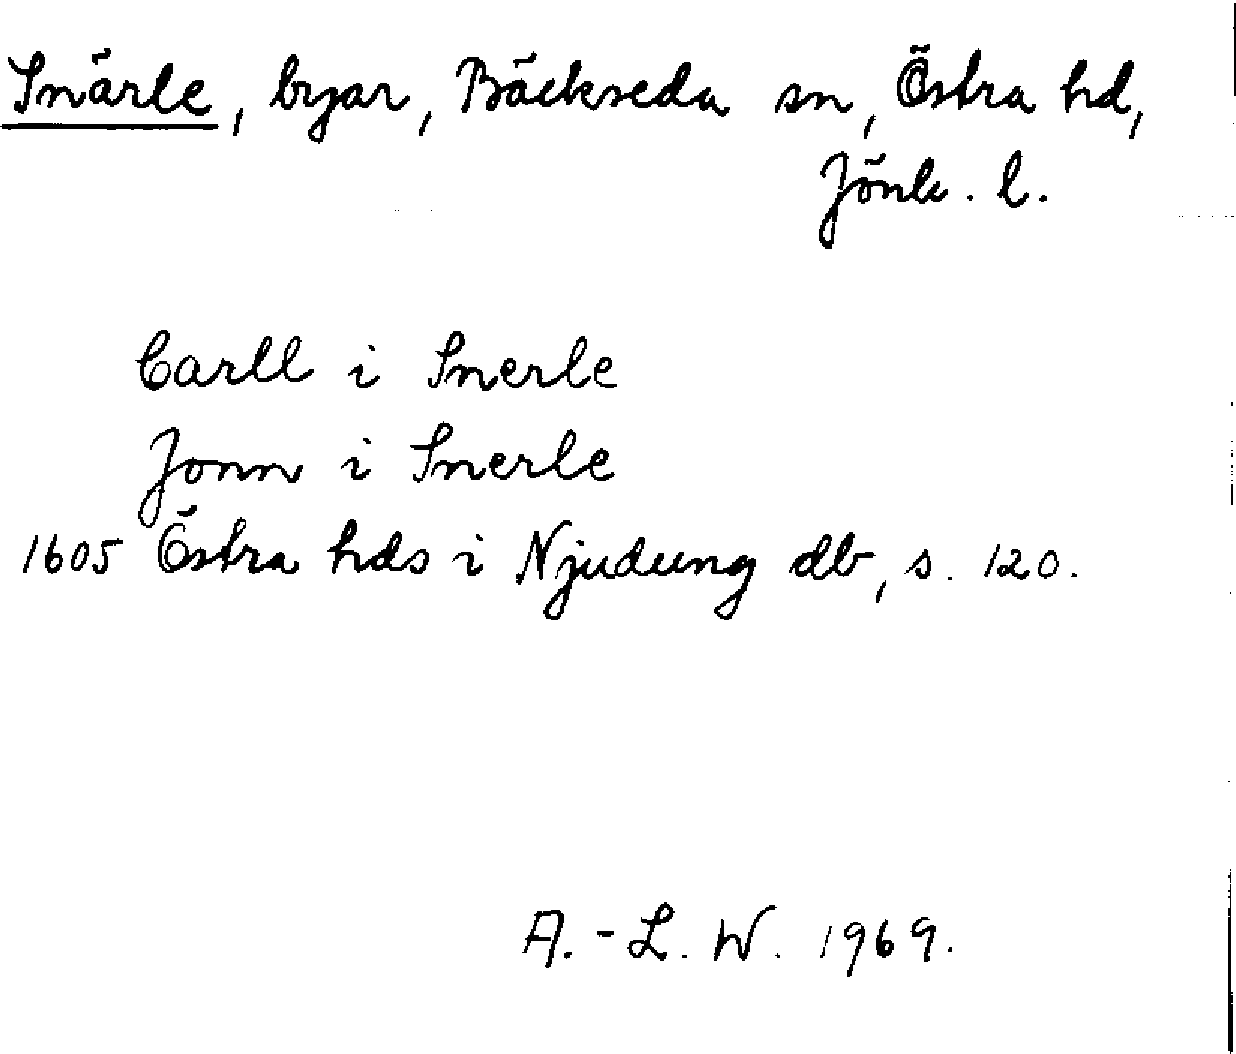 Snärle, byar, Bäckseda sn, Östra hd,
Jönk. l.
Carll i Snerle
Jonn i Snerle
1605 Östra hds i Njudung db, s. 120.
A.-L. W. 1969.